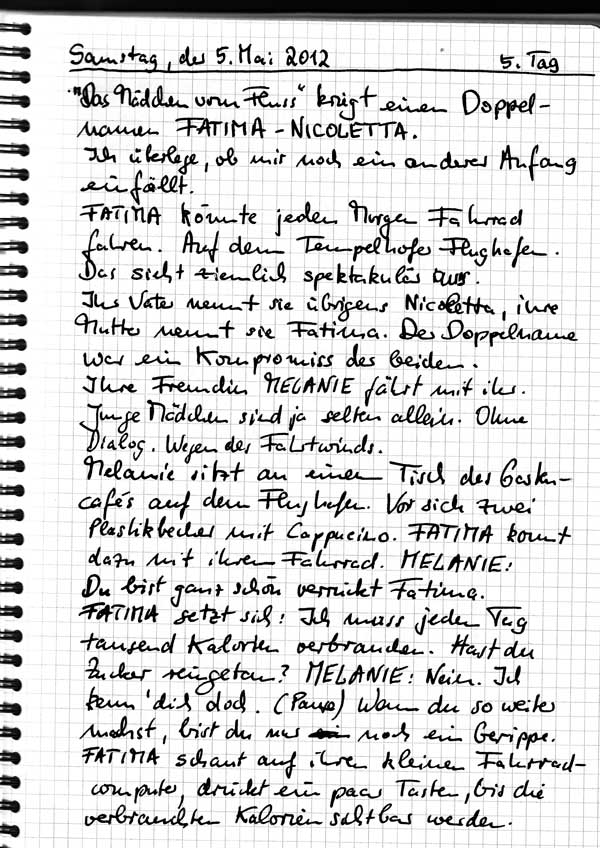 Samstag, der 5. Mai 2012 5. Tag
"Das Mädchen vom Fluss" kriegt einen Doppel-
namen FATIMA-NICOLETTA.
Ich überlege, ob mir noch ein anderer Anfang
einfällt.
FATIMA könnte jeden Morgen Fahrrad
fahren. Auf dem Tempelhofer Flughafen.
Das sieht ziemlich spektakulär aus.
Ihr Vater nennt sie übrigens Nicoletta, ihre
Mutter nennt sie Fatima. Der Doppelname
war ein Kompromiss der beiden.
Ihre Freundin MELANIE fährt mit ihr.
Junge Mädchen sind ja selten allein. Ohne
Dialog. Wegen des Fahrtwinds.
Melanie sitzt an einem Tisch des Garten-
cafés auf dem Flughafen. Vor sich zwei
Plastikbecher mit Cappucino. FATIMA kommt
dazu mit ihrem Fahrrad. MELANIE:
Du bist ganz schön verrückt Fatima.
FATIMA setzt sich: Ich muss jeden Tag
tausend Kalorien verbrauchen. Hast du
Zucker reingetan? MELANIE: Nein. Ich
kenn' dich doch. (Pause) Wenn du so weiter
machst, bist du nur noch ein Gerippe.
FATIMA schaut auf ihren kleinen Fahrrad-
computer, drückt ein paar Tasten, bis die
verbrauchten Kalorien sichtbar werden.